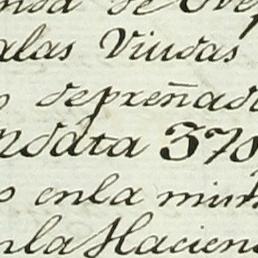 alas Viudas
depreñad
ndata 370
enla min
nla Hacien